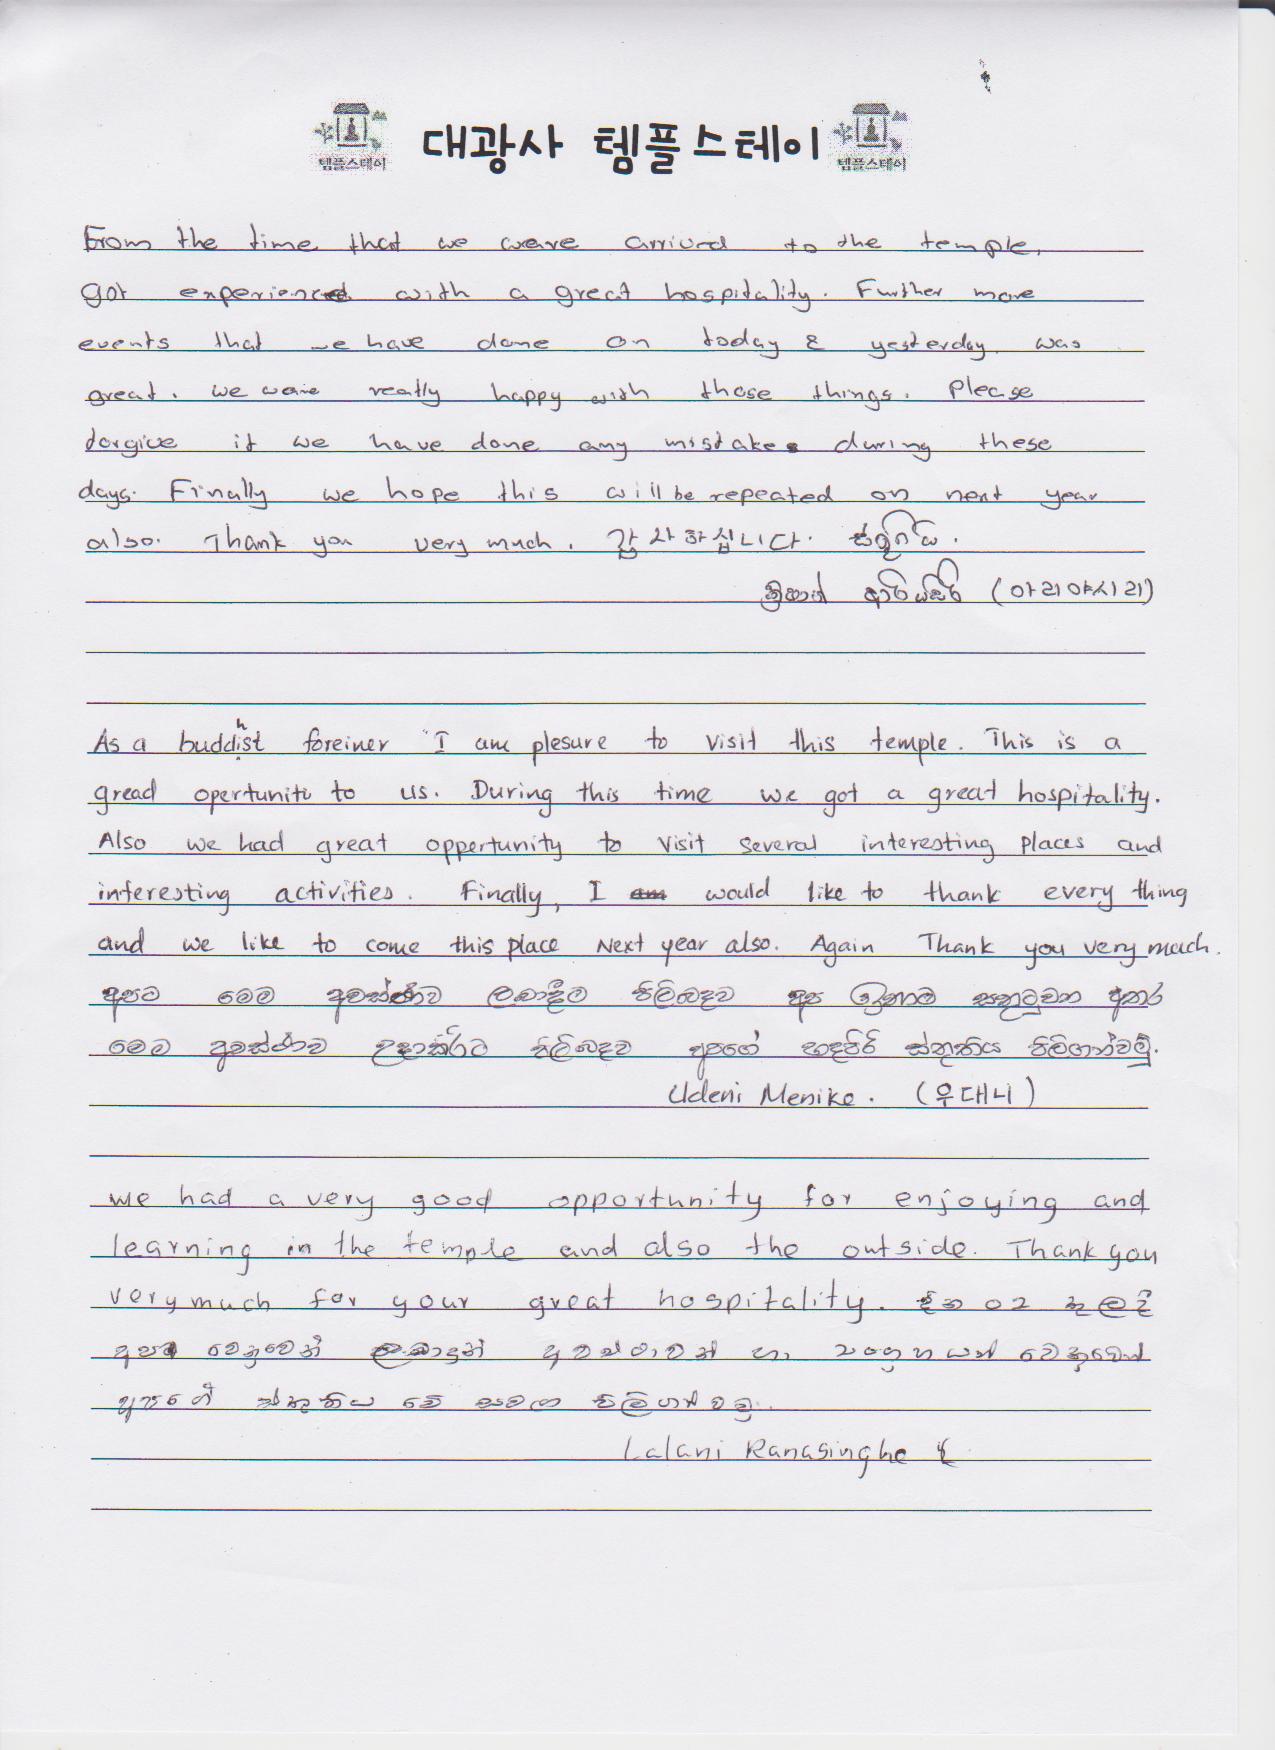 대광사 템플스테이
템플스테이
템플스테이
From the time that we weare arrived to the temple,
got experienced with a great hospitality. Further more
events that we have done on today & yesterday was
great. we ware really happy with those things. Please
forgive if we have done any mistakes during these
days. Finally we hope this will be repeated on next year
also. Thank you very much. 감사하십니다. ස්තූතියි.
ආරියසිරි (아리야시리)
As a buddhist foreiner I am plesure to visit this temple. This is a
gread opertuniti to us. During this time we got a great hospitality.
Also we had great oppertunity to visit several interesting places and
interesting activities. Finally, I would like to thank every thing
and we like to come this place Next year also. Again Thank you very much.
අපට මෙම අවස්ථාව ලබාදීම පිලිබදව අප ඉතාම සතුටුවන අතර
මෙම අවස්ථාව උදාකිරීට පිලිබදව අපගේ හෘදපිරි ස්තුතිය පිලිගන්වමු.
Udeni Menike. (우대니)
we had a very good opportunity for enjoying and
learning in the temple and also the outside. Thank you
very much for your great hospitality. දින 02 තුලදී
අප වෙනුවෙන් ලබාදුන් අවස්ථාවන් හා සංග්‍රහයන් වෙනුවෙන්
අපගේ ස්තුතිය මේ සමග පිලිගන්වමු.
Lalani Ranasinghe